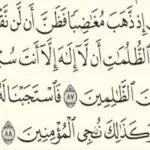 إِذ ذَّهَبَ مُغَٰضِبًا فَظَنَّ أَن لَّن نَّقْ
ٱلظُّلُمَٰتِ أَن لَّآ إِلَٰهَ إِلَّآ أَنتَ سُبْ
نَ ٱلظَّٰلِمِينَ ٨٧ فَٱسْتَجَبْنَا لَهُ
وَكَذَٰلِكَ نُـۨجِى ٱلْمُؤْمِنِينَ ٨٨